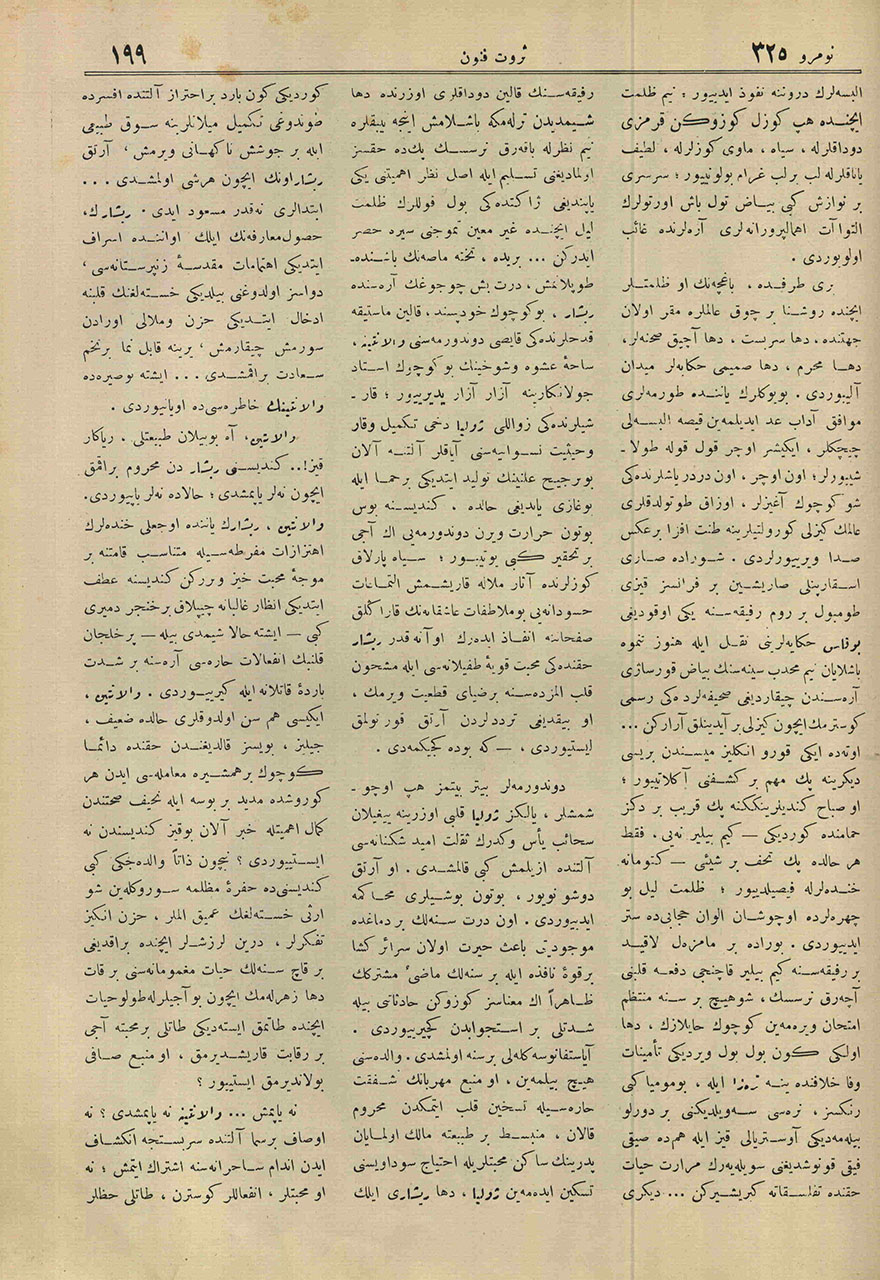 نومرو ٣٢٥
ثروت فنون
١٩٩
البسه‌لرك دروننه نفوذ ايدييور ؛ نيم ظلمت
ايچنده هپ كوزل كوزوكن قرمزى
دوداقلرله ، سياه ، ماوى كوزلرله ، لطيف
ياناقلرله لب برلب غرام بولونييور ؛ سرسرى
بر نوازش كبى بياض تول باش اورتولرك
التواآت اهمالپرورانه‌لرى آره‌لرنده غائب
اولويوردى .
برى طرفده ، باغچه‌نك او ظلمتلر
ايچنده روشنا بر چوق عالملره مقر اولان
جهتنده ، دها سربست ، دها آچيق صحنه‌لر ،
دها محرم ، دها صميمى حكايه‌لر ميدان
آلييوردى . بويوكلرك ياننده طورمه‌لرى
موافق آداب عد ايديلمه‌ين قيصه البسه‌لى
چيچكلر ، ايكيشر اوچر قول قوله طولا-
شيورلر ؛ اون اوچر ، اون دردر ياشلرنده‌كى
شو كوچوك آغيزلر ، اوزاق طوتولدقلرى
عالمك كيزلى كورولتيلرينه طنت افزا برعكس
صدا ويرييورلردى . شوراده صارى
اسقارپنلى صاريشين بر فرانسز قيزى
طومبول بر روم رفيقه‌سنه يكى اوقوديغى
برفاس حكايه‌لرينى نقل ايله هنوز نتموه
باشلايان نيم محدب سينه‌سنك بياض قورساژى
آره‌سندن چيقارديغى صحيفه‌لرده‌كى رسمى
كوسترمك ايچون كيزلى بر آيدينلق آراركن ...
اوته‌ده ايكى قورو انكليز ميسندن بريسى
ديكرينه پك مهم بر كشفنى آكلاتييور ؛
او صباح كنديلرينكنه پك قريب بر دكز
حمامنده كورديكى — كيم بيلير نه‌يى ، فقط
هر حالده پك تحف بر شيئى — كتومانه
خنده‌لرله فيصيلدييور ؛ ظلمت ليل بو
چهره‌لرده اوچوشان الوان حجابى‌ده ستر
ايدييوردى . بوراده بر مامزه‌ل لاقيد
بر رفيقه‌سنه كيم بيلير قاچنجى دفعه قلبنى
آچه‌رق نرسسك ، شوهيچ بر سنه منتظم
امتحان ويره‌مه‌ين كوچوك حايلازك ، دها
اولكى كون بول بول ويرديكى تأمينات
وفا خلافنده ينه تره‌زا ايله ، بوموميا كبى
رنكسز ، نره‌سى سه‌ويلديكنى بر دورلو
بيله‌مه‌ديكى آوستريالى قيز ايله همده صيقى
فيقى قونوشديغنى سويله‌يه‌رك مرارت حيات
حقنده تفلسفاته كيريشيركن ... ديكرى
رفيقه‌سنك قالين دوداقلرى اوزرنده دها
شيمديدن ترله‌مكه باشلامش اينجه بيقلره
نيم نظرله باقه‌رق نرسسك پك‌ده حقسز
اولماديغنى تسليم ايله اصل نظر اهميتنى يكى
ياپديغى ژاكتنده‌كى بول فوللرك ظلمت
ليل ايچنده غير معين تموجنى سيره حصر
ايدركن ... بريده ، تخته ماصه‌نك باشنده-
طوپلانمش ، درت بش چوجوغك آره‌سنده
ريشار ، بوكوچوك خودپسند ، قالين ماستيقه
قدحلرنده‌كى قايصى دوندورمه‌سنى والانتينه ،
ساحهٔ عشوه وشوخينك بو كوچوك استاد
جولانكارينه آزار آزار يديرييور ؛ قار-
شيلرنده‌كى زواللى ژوليا دخى تكميل وقار
وحيثيت نسوانيه‌سى آياقلر آلتنه آلان
بوترجيح علنينك توليد ايتديكى برحما ايله
بوغازى ياندينى حالده . كنديسنه بوس
بوتون حرارت ويرن دوندورمه‌يى اك آجى
بر تحقير كبى يوتييور ؛ سياه پارلاق
كوزلرنده آثار ملاله قاريشمش التماعات
حسودانه‌يى بو ملاطفات عاشقانه‌نك قاراكلق
صفحاتنه انفاذ ايده‌رك اوآنه قدر ريشار
حقنده‌كى محبت قويهٔ طفيلانه‌سى ايله مشحون
قلب المزده‌سنه برضياى قطعيت ويرمك ،
او بيقديغى ترددلردن آرتق قورتولمق
ايستيوردى ، — كه بوده كجيكمه‌دى .
دوندورمه‌لر بيتر بيتمز هپ اوچو-
شمشلر ، يالكز ژوليا قلبى اوزرينه ييغيلان
سحائب يأس وكدرك ثقلت اميد شكنانه‌سى
آلتنده ازيلمش كبى قالمشدى . او آرتق
دوشونويور ، بوتون بوشيلرى محاكمه
ايدييوردى . اون درت سنه‌لك بر دماغده
موجوديتى باعث حيرت اولان سرائر كشا
برقوهٔ نافذه ايله بر سنه‌لك ماضئ مشتركك
ظاهراً اك معناسز كوزوكن حادثاتى بيله
شدتلى بر استجوابدن كچيرييوردى .
آياستفانوسه كله‌لى برسنه اولمشدى . والده‌سنى
هيچ بيلمه‌ين ، او منبع مهربانك شفقت
حاره‌سيله تسخين قلب ايتمكدن محروم
قالان ، منبسط بر طبيعته مالك اولمايان
پدرينك ساكن محبتلريله احتياج سوداويسنى
تسكين ايده‌مه‌ين ژوليا ، دها ريشارى ايلك
كورديكى كون بارد براحتراز آلتنده افسرده
طوندوغى تكميل ميلانلرينه سوق طبيعى
ايله بر جوشش ناكهانى ويرمش ، آرتق
ريشار اونك ايچون هرشى اولمشدى ...
ابتدالرى نه‌قدر مسعود ايدى . ريشارك ،
حصول معارفه‌نك ايلك اواننده اسراف
ايتديكى اهتمامات مقدسهٔ زنپرستانه‌سى ،
دواسز اولدوغنى بيلديكى خسته‌لغنك قلبنه
ادخال ايتديكى حزن وملالى اورادن
سورمش چيقارمش ، يرينه قابل نما برتخم
سعادت براقمشدى ... ايشته بوصيره‌ده
والانتينك خاطره‌سى‌ده اويانيوردى .
والانتين ، آه بوييلان طبيعتلى ، رياكار
قيز !.. كنديسنى ريشار دن محروم براقمق
ايچون نه‌لر ياپمشدى ؛ حالاده نه‌لر ياپييوردى .
والانتين ، ريشارك ياننده اوجعلى خنده‌لرك
اهتزازات مفرطه‌سيله متناسب قامتنه بر
موجهٔ محبت خيز ويرركن كنديسنه عطف
ايتديكى انظار غالبانه چيپلاق برخنجر دميرى
كبى — ايشته حالا شيمدى بيله — پرخلجان
قلبنك انفعالات حاره‌سى آره‌سنه بر شدت
باردهٔ قاتلانه ايله كيرييوردى . والانتين ،
ايكيسى هم سن اولدوقلرى حالده ضعيف ،
جيليز ، بويسز قالديغندن حقنده دائما
كوچوك برهمشيره معامله‌سى ايدن هر
كوروشده مديد بر بوسه ايله نحيف صحتندن
كمال اهميتله خبر آلان بوقيز كنديسندن نه
ايستييوردى ؟ نيچون ذاتاً والده‌جكى كبى
كنديسنى‌ده حفرهٔ مظلمه سوروكله‌ين شو
ارثى خسته‌لغك عميق الملر ، حزن انكيز
تفكرلر ، درين لرزشلر ايچنده براقديغى
بر قاچ سنه‌لك حيات مغمومانه‌سنى بر قات
دها زهرله‌مك ايچون بو آجيلرله طولوحيات
ايچنده طاتمق ايسته‌ديكى طاتلى برمحبته آجى
بر رقابت قاريشديرمق ، او منبع صافى
بولانديرمق ايستييور ؟
نه ياپمش ... والانتينه نه ياپمشدى ؟ نه
اوصاف برسما آلتنده سربستجه انكشاف
ايدن اندام ساحرانه‌سنه اشتراك ايتمش ؛ نه
او محبتلر ، انفعاللر كوسترن ، طاتلى حظلر